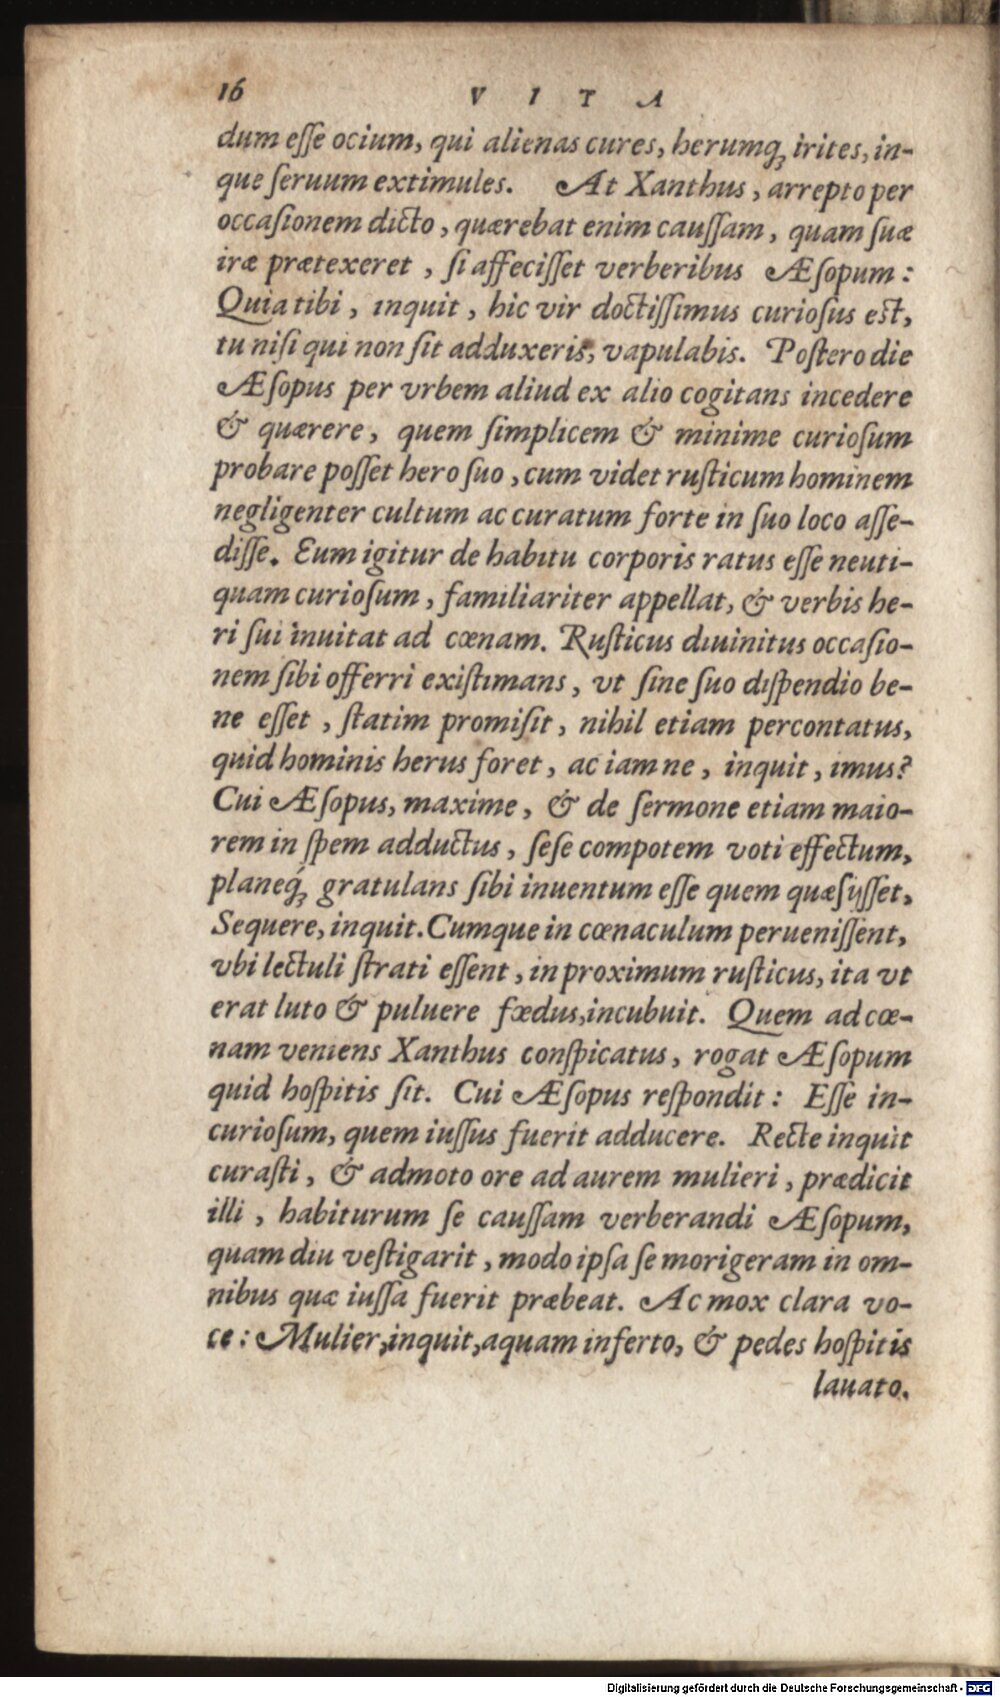 16 VITA
dum eſſe ocium, qui alienas cures, herumq́ꝫ irites, in-
que ſeruum extimules. At Xanthus, arrepto per
occaſionem dicto, quærebat enim cauſſam, quam ſuæ
iræ prætexeret, ſi affeciſſet verberibus Æſopum:
Quia tibi, inquit, hic vir doctiſſimus curioſus eſt,
tu niſi qui non ſit adduxeris, vapulabis. Poſtero die
Æſopus per vrbem aliud ex alio cogitans incedere
& quærere, quem ſimplicem & minime curioſum
probare poſſet hero ſuo, cum videt ruſticum hominem
negligenter cultum ac curatum forte in ſuo loco aſſe-
diſſe. Eum igitur de habitu corporis ratus eſſe neuti-
quam curioſum, familiariter appellat, & verbis he-
ri ſui inuitat ad cœnam. Ruſticus diuinitus occaſio-
nem ſibi offerri exiſtimans, vt ſine ſuo diſpendio be-
ne eſſet, ſtatim promiſit, nihil etiam percontatus,
quid hominis herus foret, ac iamne, inquit, imus?
Cui Æſopus, maxime, & de ſermone etiam maio-
rem in ſpem adductus, ſeſe compotem voti effectum,
planeq́ꝫ gratulans ſibi inuentum eſſe quem quæſijſſet,
Sequere, inquit. Cumque in cœnaculum perueniſſent,
vbi lectuli ſtrati eſſent, in proximum ruſticus, ita vt
erat luto & puluere fœdus, incubuit. Quem ad cœ-
nam veniens Xanthus conſpicatus, rogat Æſopum
quid hoſpitis ſit. Cui Æſopus reſpondit: Eſſe in-
curioſum, quem iuſſus fuerit adducere. Recte inquit
curaſti, & admoto ore ad aurem mulieri, prædicit
illi, habiturum ſe cauſſam verberandi Æſopum,
quam diu veſtigarit, modo ipſa ſe morigeram in om-
nibus quæ iuſſa fuerit præbeat. Ac mox clara vo-
ce: Mulier, inquit, aquam inferto, & pedes hoſpitis
lauato.
Digitalisierung gefördert durch die Deutsche Forschungsgemeinschaft - DFG